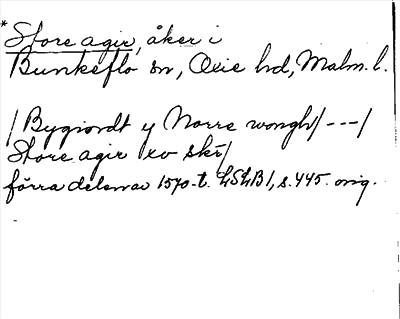 *Store agir, åker i
Bunkeflo sn, Oxie hd, Malm. l.
/Bygiordt y Norre wongh/ ---/
Store agir xv skr/
förra delen av 1570-t. LSLB1, s. 445. orig.